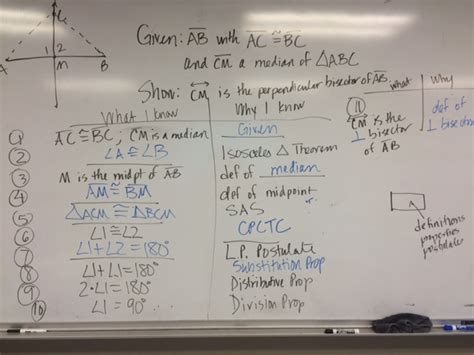 Given: AB with AC ≅ BC
and CM a median of △ABC
Show: CM is the perpendicular bisector of AB.
C
1 2
A M B
What I know Why I know
① AC ≅ BC; CM is a median Given
② ∠A ≅ ∠B Isosceles △ Theorem
③ M is the midpt of AB def of median
④ AM ≅ BM def of midpoint
⑤ △ACM ≅ △BCM SAS
⑥ ∠1 ≅ ∠2 CPCTC
⑦ ∠1 + ∠2 = 180° L.P. Postulate
⑧ ∠1 + ∠1 = 180° Substitution Prop
⑨ 2·∠1 = 180° Distributive Prop
⑩ ∠1 = 90° Division Prop
what Why
⑪ CM is the ⊥ bisector of AB
def of ⊥ bisector
definitions
properties
postulates